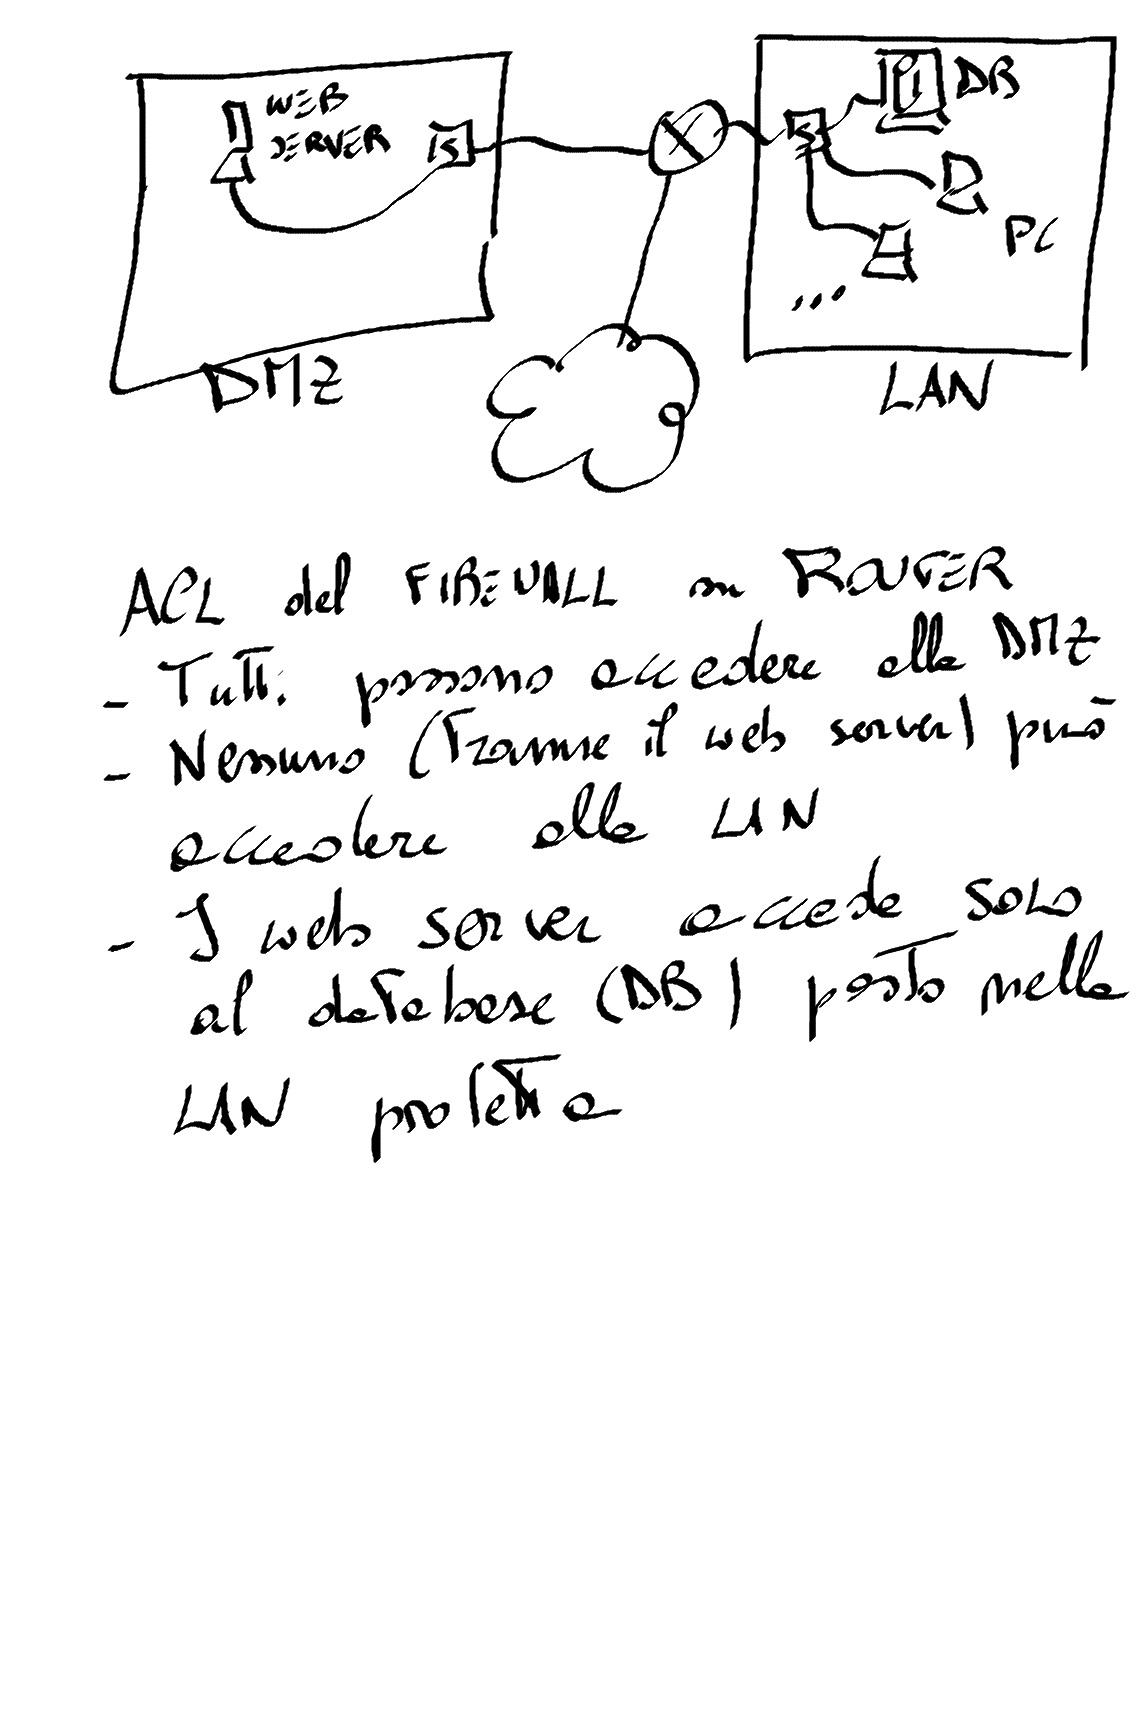 WEB
SERVER
S
S
DB
PC
...
DMZ
LAN
ACL del FIREWALL su ROUTER
- Tutti possono accedere alla DMZ
- Nessuno (tranne il web server) può
accedere alla LAN
- I web server accede solo
al database (DB) posto nella
LAN protetta